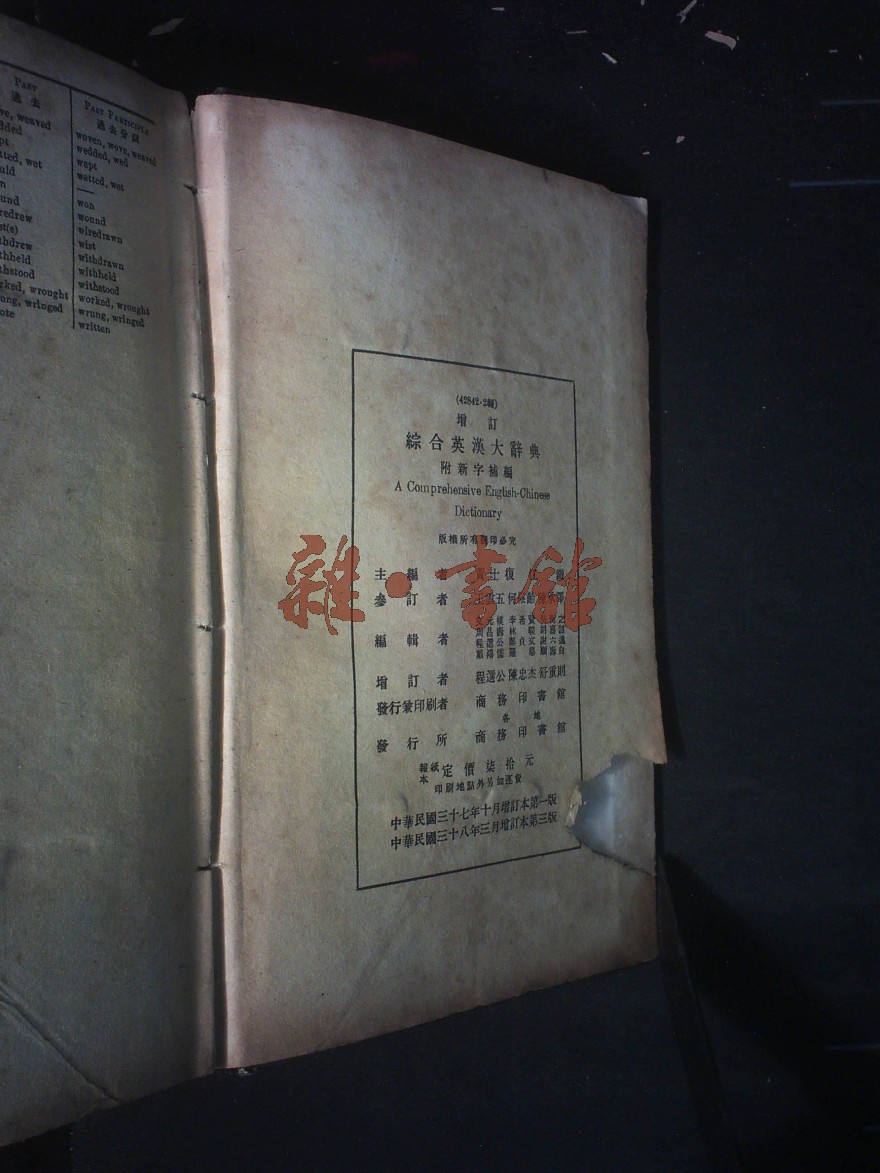 PAST
過去
PAST PARTICIPLE
過去分詞
weaved
woven, wove, weaved
wedded, wed
wept
wet
wetted, wet
—
won
wound
wiredrawn
wist
withdrawn
withheld
withstood
wrought
worked, wrought
wringed
wrung, wringed
written
(42842·2精)
增訂
綜合英漢大辭典
附新字補編
A Comprehensive English-Chinese
Dictionary
版權所有翻印必究
主編者 黃士復 江
參訂者 五何
編輯者
增訂者 程選公 陳忠杰 舒重則
發行兼印刷者 商務印書館
各地
發行所 商務印書館
報紙本 定價柒拾元
印刷地點外另加運費
中華民國三十七年十月增訂本第一版
中華民國三十八年三月增訂本第三版
雜·書館